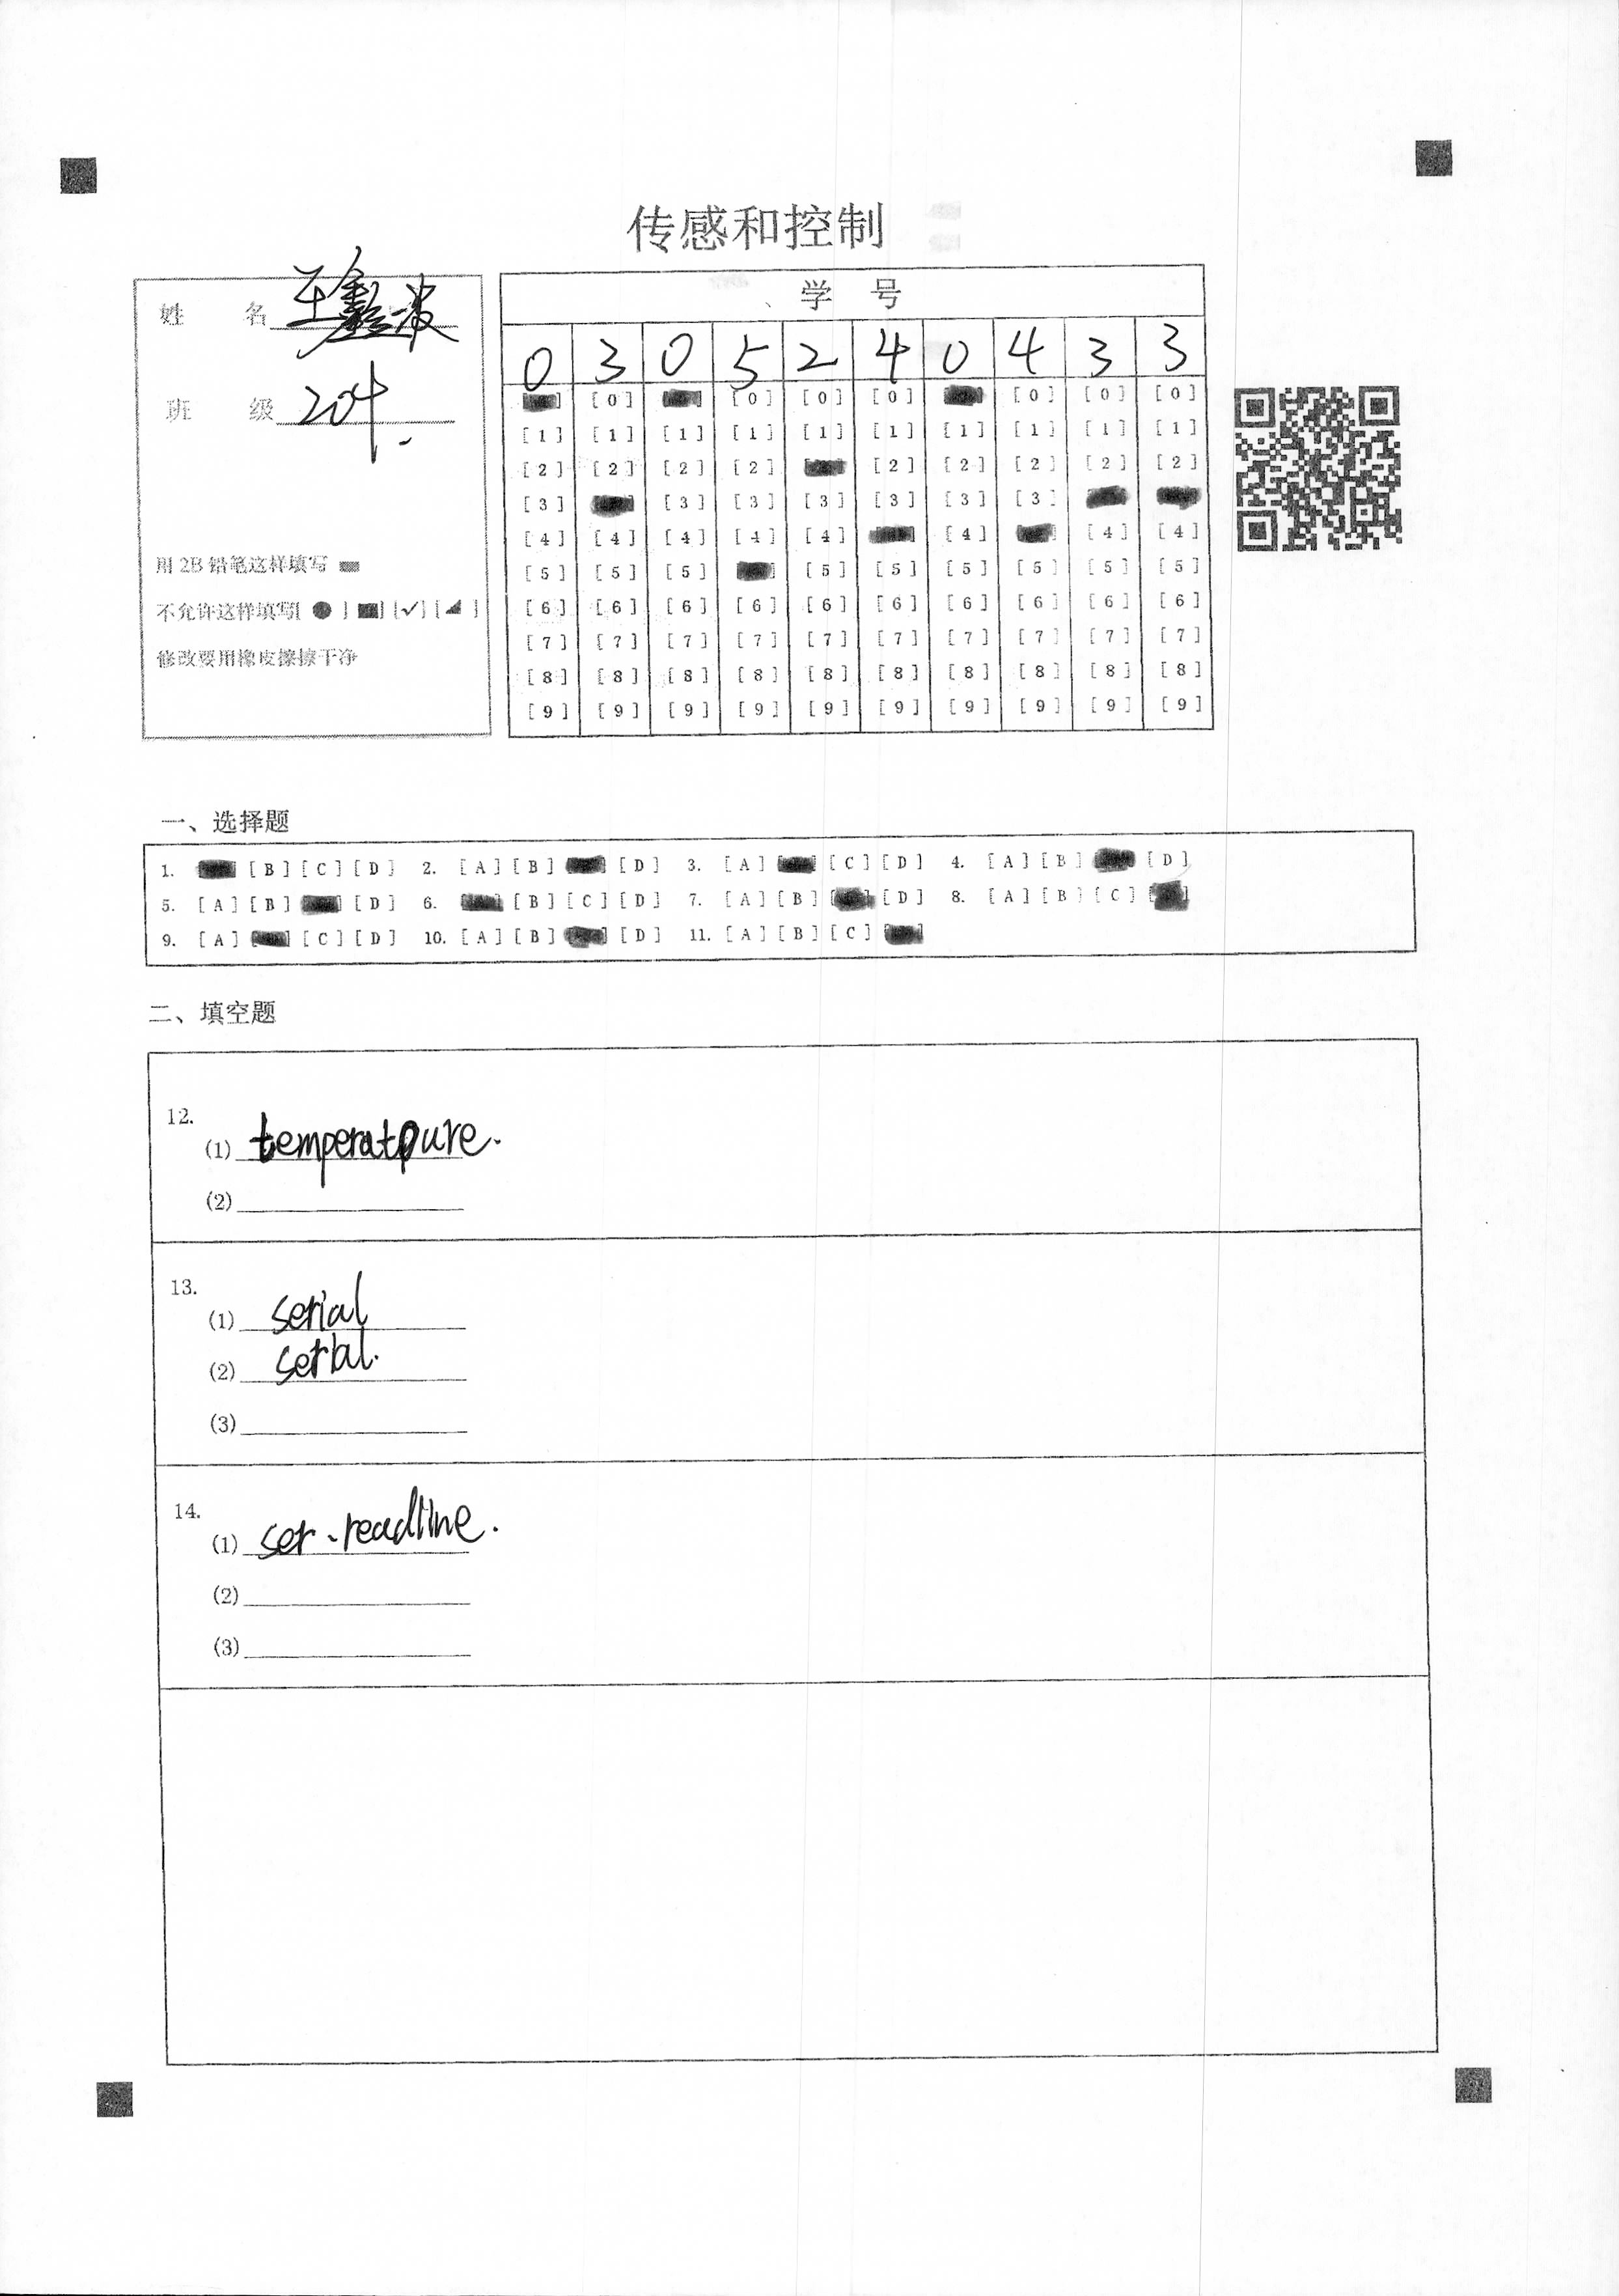 传感和控制
姓 名 王鑫波
班 级 204.
用 2B 铅笔这样填写
不允许这样填写[ ● ] [■] [✓] [◢ ]
修改要用橡皮擦擦干净
学 号
0 3 0 5 2 4 0 4 3 3
[0] [0] [0] [0] [0] [0] [0]
[1] [1] [1] [1] [1] [1] [1] [1] [1] [1]
[2] [2] [2] [2] [2] [2] [2] [2] [2]
[3] [3] [3] [3] [3] [3] [3]
[4] [4] [4] [4] [4] [4] [4] [4]
[5] [5] [5] [5] [5] [5] [5] [5] [5]
[6] [6] [6] [6] [6] [6] [6] [6] [6] [6]
[7] [7] [7] [7] [7] [7] [7] [7] [7] [7]
[8] [8] [8] [8] [8] [8] [8] [8] [8] [8]
[9] [9] [9] [9] [9] [9] [9] [9] [9] [9]
一、选择题
1. [B] [C] [D] 2. [A] [B] [D] 3. [A] [C] [D] 4. [A] [B] [D]
5. [A] [B] [D] 6. [B] [C] [D] 7. [A] [B] [D] 8. [A] [B] [C]
9. [A] [C] [D] 10. [A] [B] [D] 11. [A] [B] [C]
二、填空题
12.
(1) temperature.
(2)
13.
(1) serial
(2) serial.
(3)
14.
(1) ser.readline.
(2)
(3)